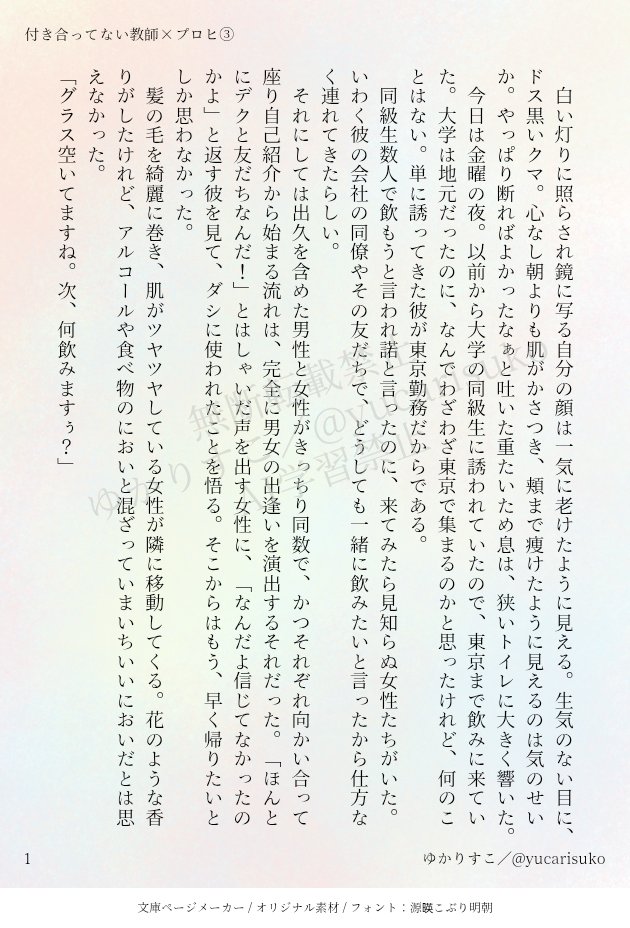 付き合ってない教師×プロヒ③
白い灯りに照らされ鏡に写る自分の顔は一気に老けたように見える。生気のない目に、
ドス黒いクマ。心なし朝よりも肌がかさつき、頬まで痩けたように見えるのは気のせい
か。やっぱり断ればよかったなぁ。吐いた重たいため息は、狭いトイレに大きく響いた。
今日は金曜の夜。以前から大学の同級生に誘われていたので、東京まで飲みに来てい
た。大学は地元だったのに、なんでわざわざ東京で集まるのかと思ったけれど、何のこ
とはない。単に誘ってきた彼が東京勤務だからである。
同級生数人で飲もうと言われ諾と言ったのに、来てみたら見知らぬ女性たちがいた。
いわく彼の会社の同僚やその友だちで、どうしても一緒に飲みたいと言ったから仕方な
く連れてきたらしい。
それにしては出久を含めた男性と女性がきっちり同数で、かつそれぞれ向かい合って
座り自己紹介から始まる流れは、完全に男女の出逢いを演出するそれだった。「ほんと
にデクと友だちなんだ！」とはしゃいだ声を出す女性に、「なんだよ信じてなかったの
かよ」と返す彼を見て、ダシに使われたことを悟る。そこからはもう、早く帰りたいと
しか思わなかった。
髪の毛を綺麗に巻き、肌がツヤツヤしている女性が隣に移動してくる。花のような香
りがしたけれど、アルコールや食べ物のにおいと混ざっていまいちいいにおいだとは思
えなかった。
「グラス空いてますね。次、何飲みますぅ？」
無断転載禁止
ゆかりすこ／@yucarisuko
AI学習禁止
1
ゆかりすこ／@yucarisuko
文庫ページメーカー / オリジナル素材 / フォント：源暎こぶり明朝